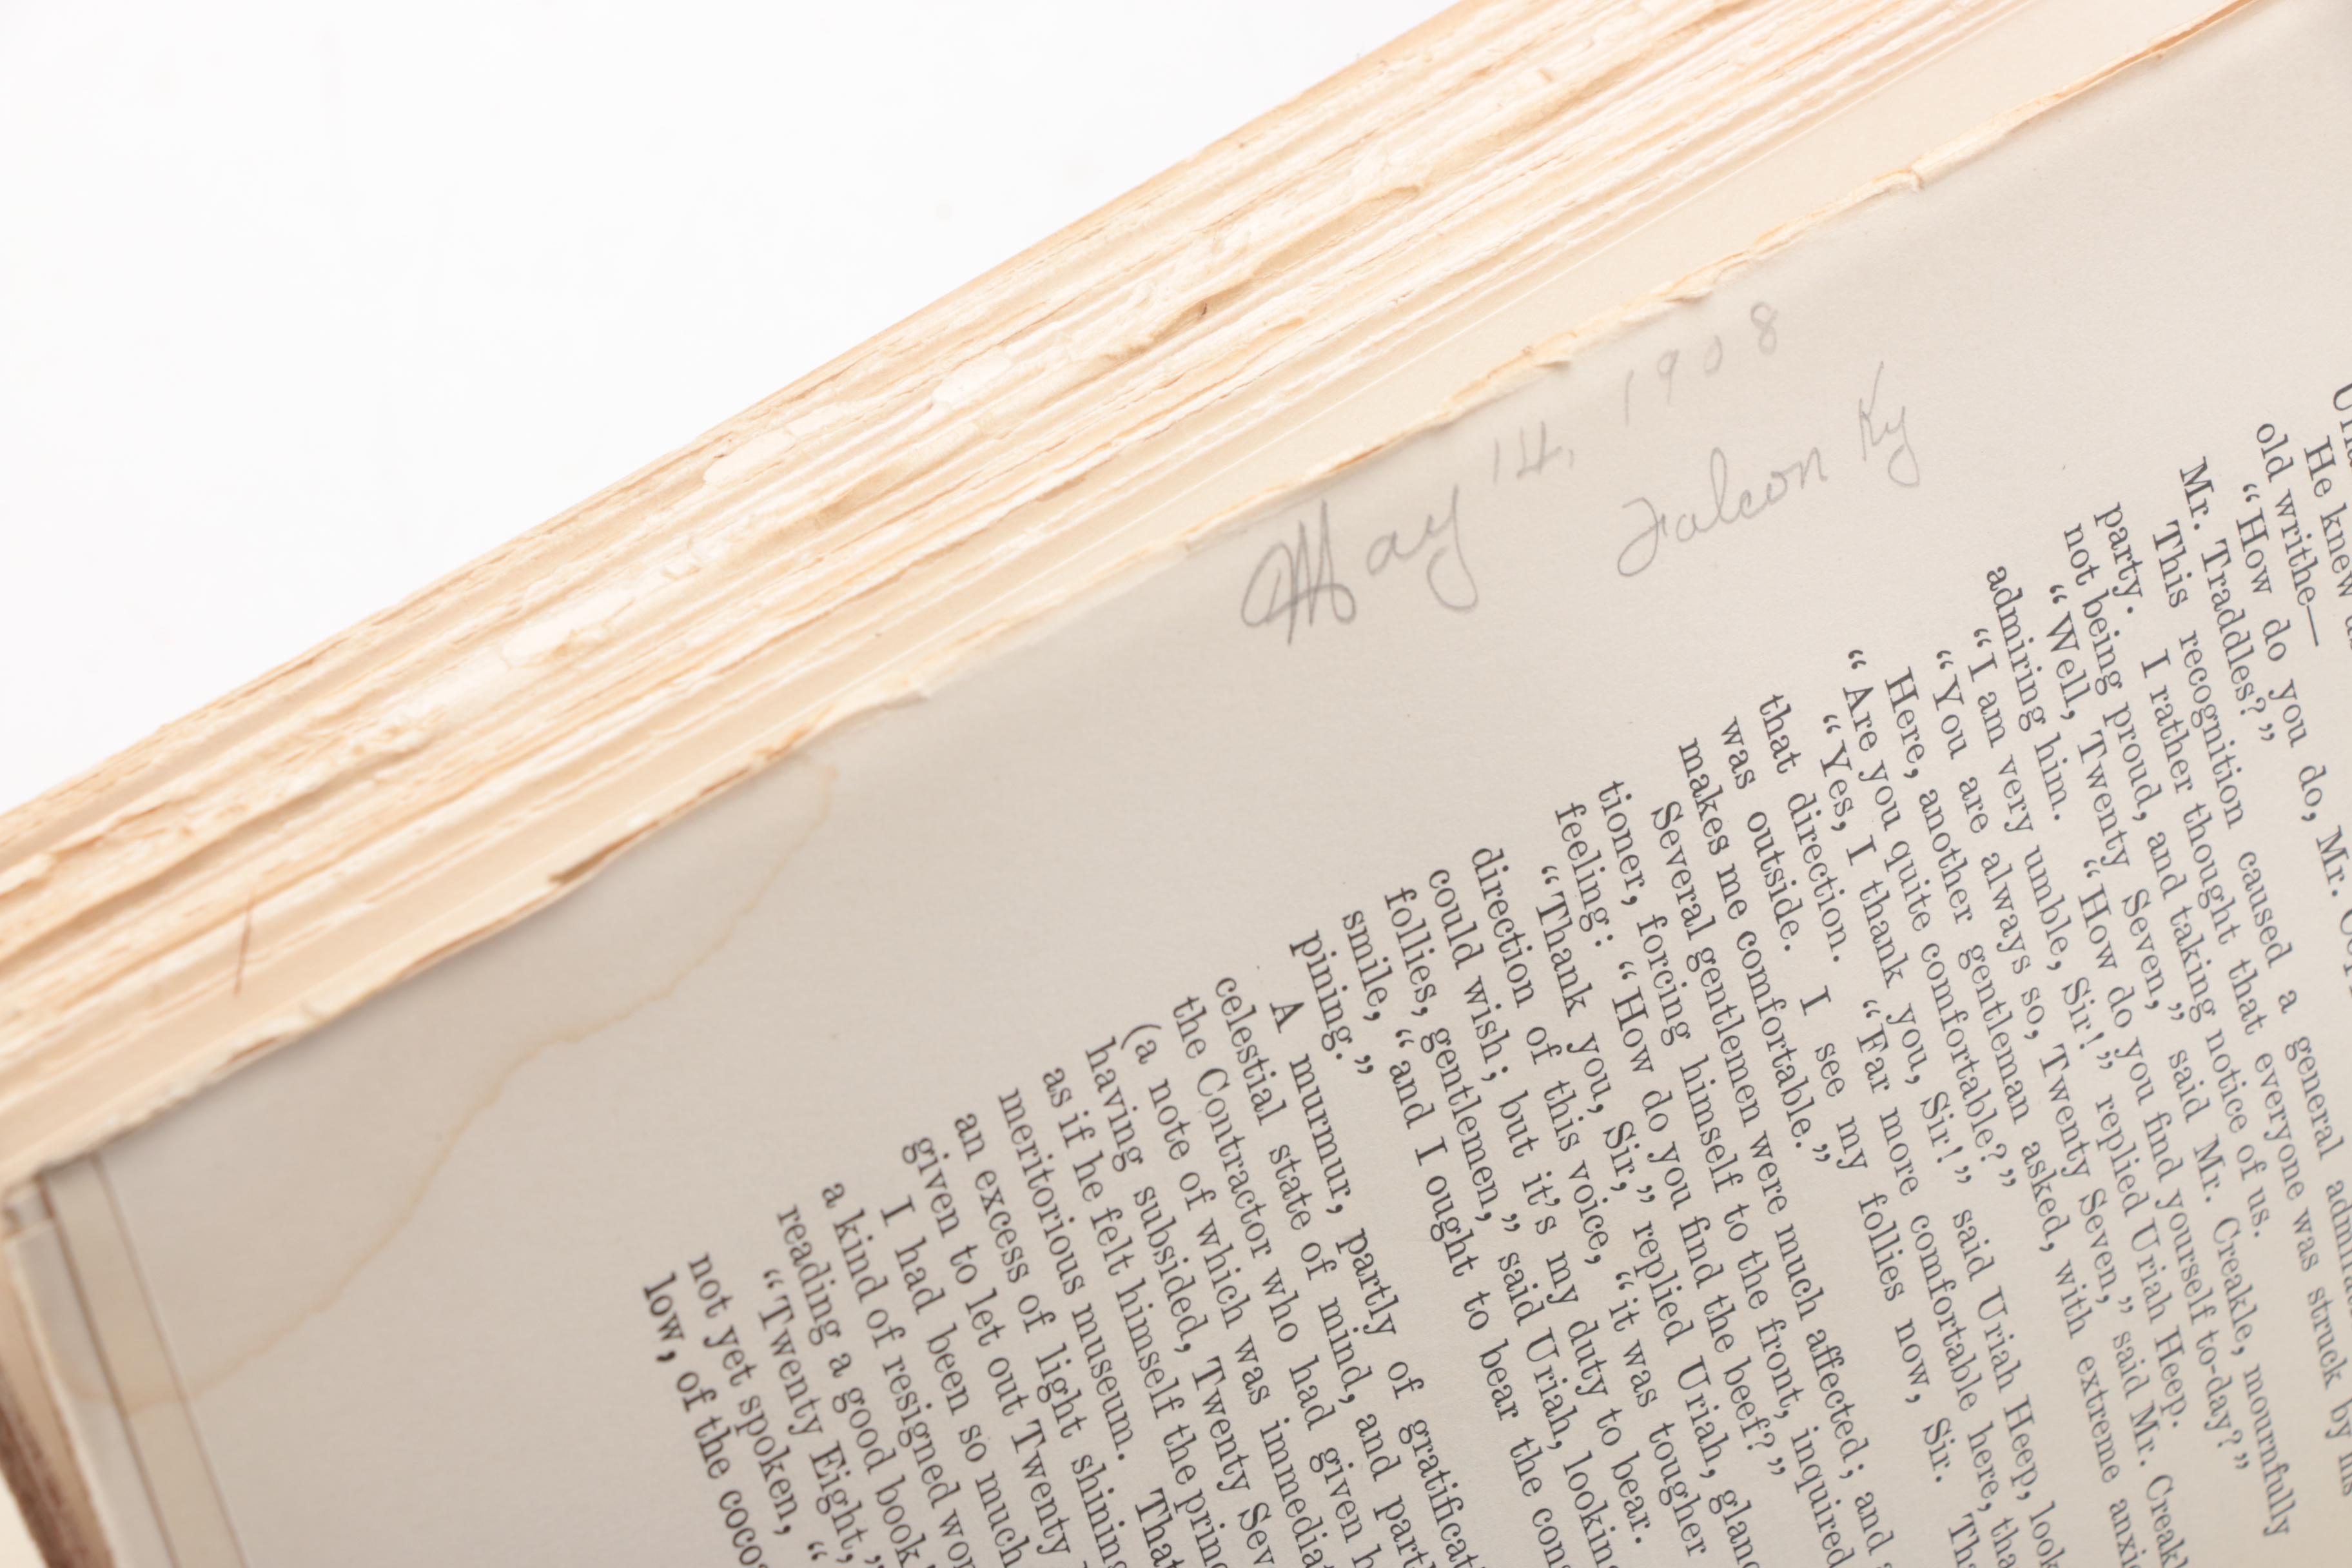 May 14, 1908
Falcon Ky
He knew
old writhe—
"How do you do, Mr.
Mr. Traddles?"
This recognition caused a general
I rather thought that everyone was struck by his
party.
not being proud, and taking notice of us.
"Well, Twenty Seven," said Mr. Creakle, mournfully
admiring him. "How do you find yourself to-day?"
"I am very umble, Sir!" replied Uriah Heep.
"You are always so, Twenty Seven," said Mr.
Here, another gentleman asked, with extreme
"Are you quite comfortable?"
"Yes, I thank you, Sir!" said Uriah Heep,
that direction. "Far more comfortable here,
was outside. I see my follies now, Sir.
makes me comfortable."
Several gentlemen were much affected; and
tioner, forcing himself to the front, inquired
feeling: "How do you find the beef?"
"Thank you, Sir," replied Uriah,
direction of this voice, "it was tougher
could wish; but it's my duty to bear.
follies, gentlemen," said Uriah,
smile, "and I ought to bear the
pining."
A murmur, partly of
celestial state of mind, and
the Contractor who had given
(a note of which was
having subsided, Twenty
as if he felt himself the
meritorious museum.
an excess of light
given to let out Twenty
I had been so much
a kind of resigned
reading a good book
"Twenty Eight,"
not yet spoken, "
low, of the